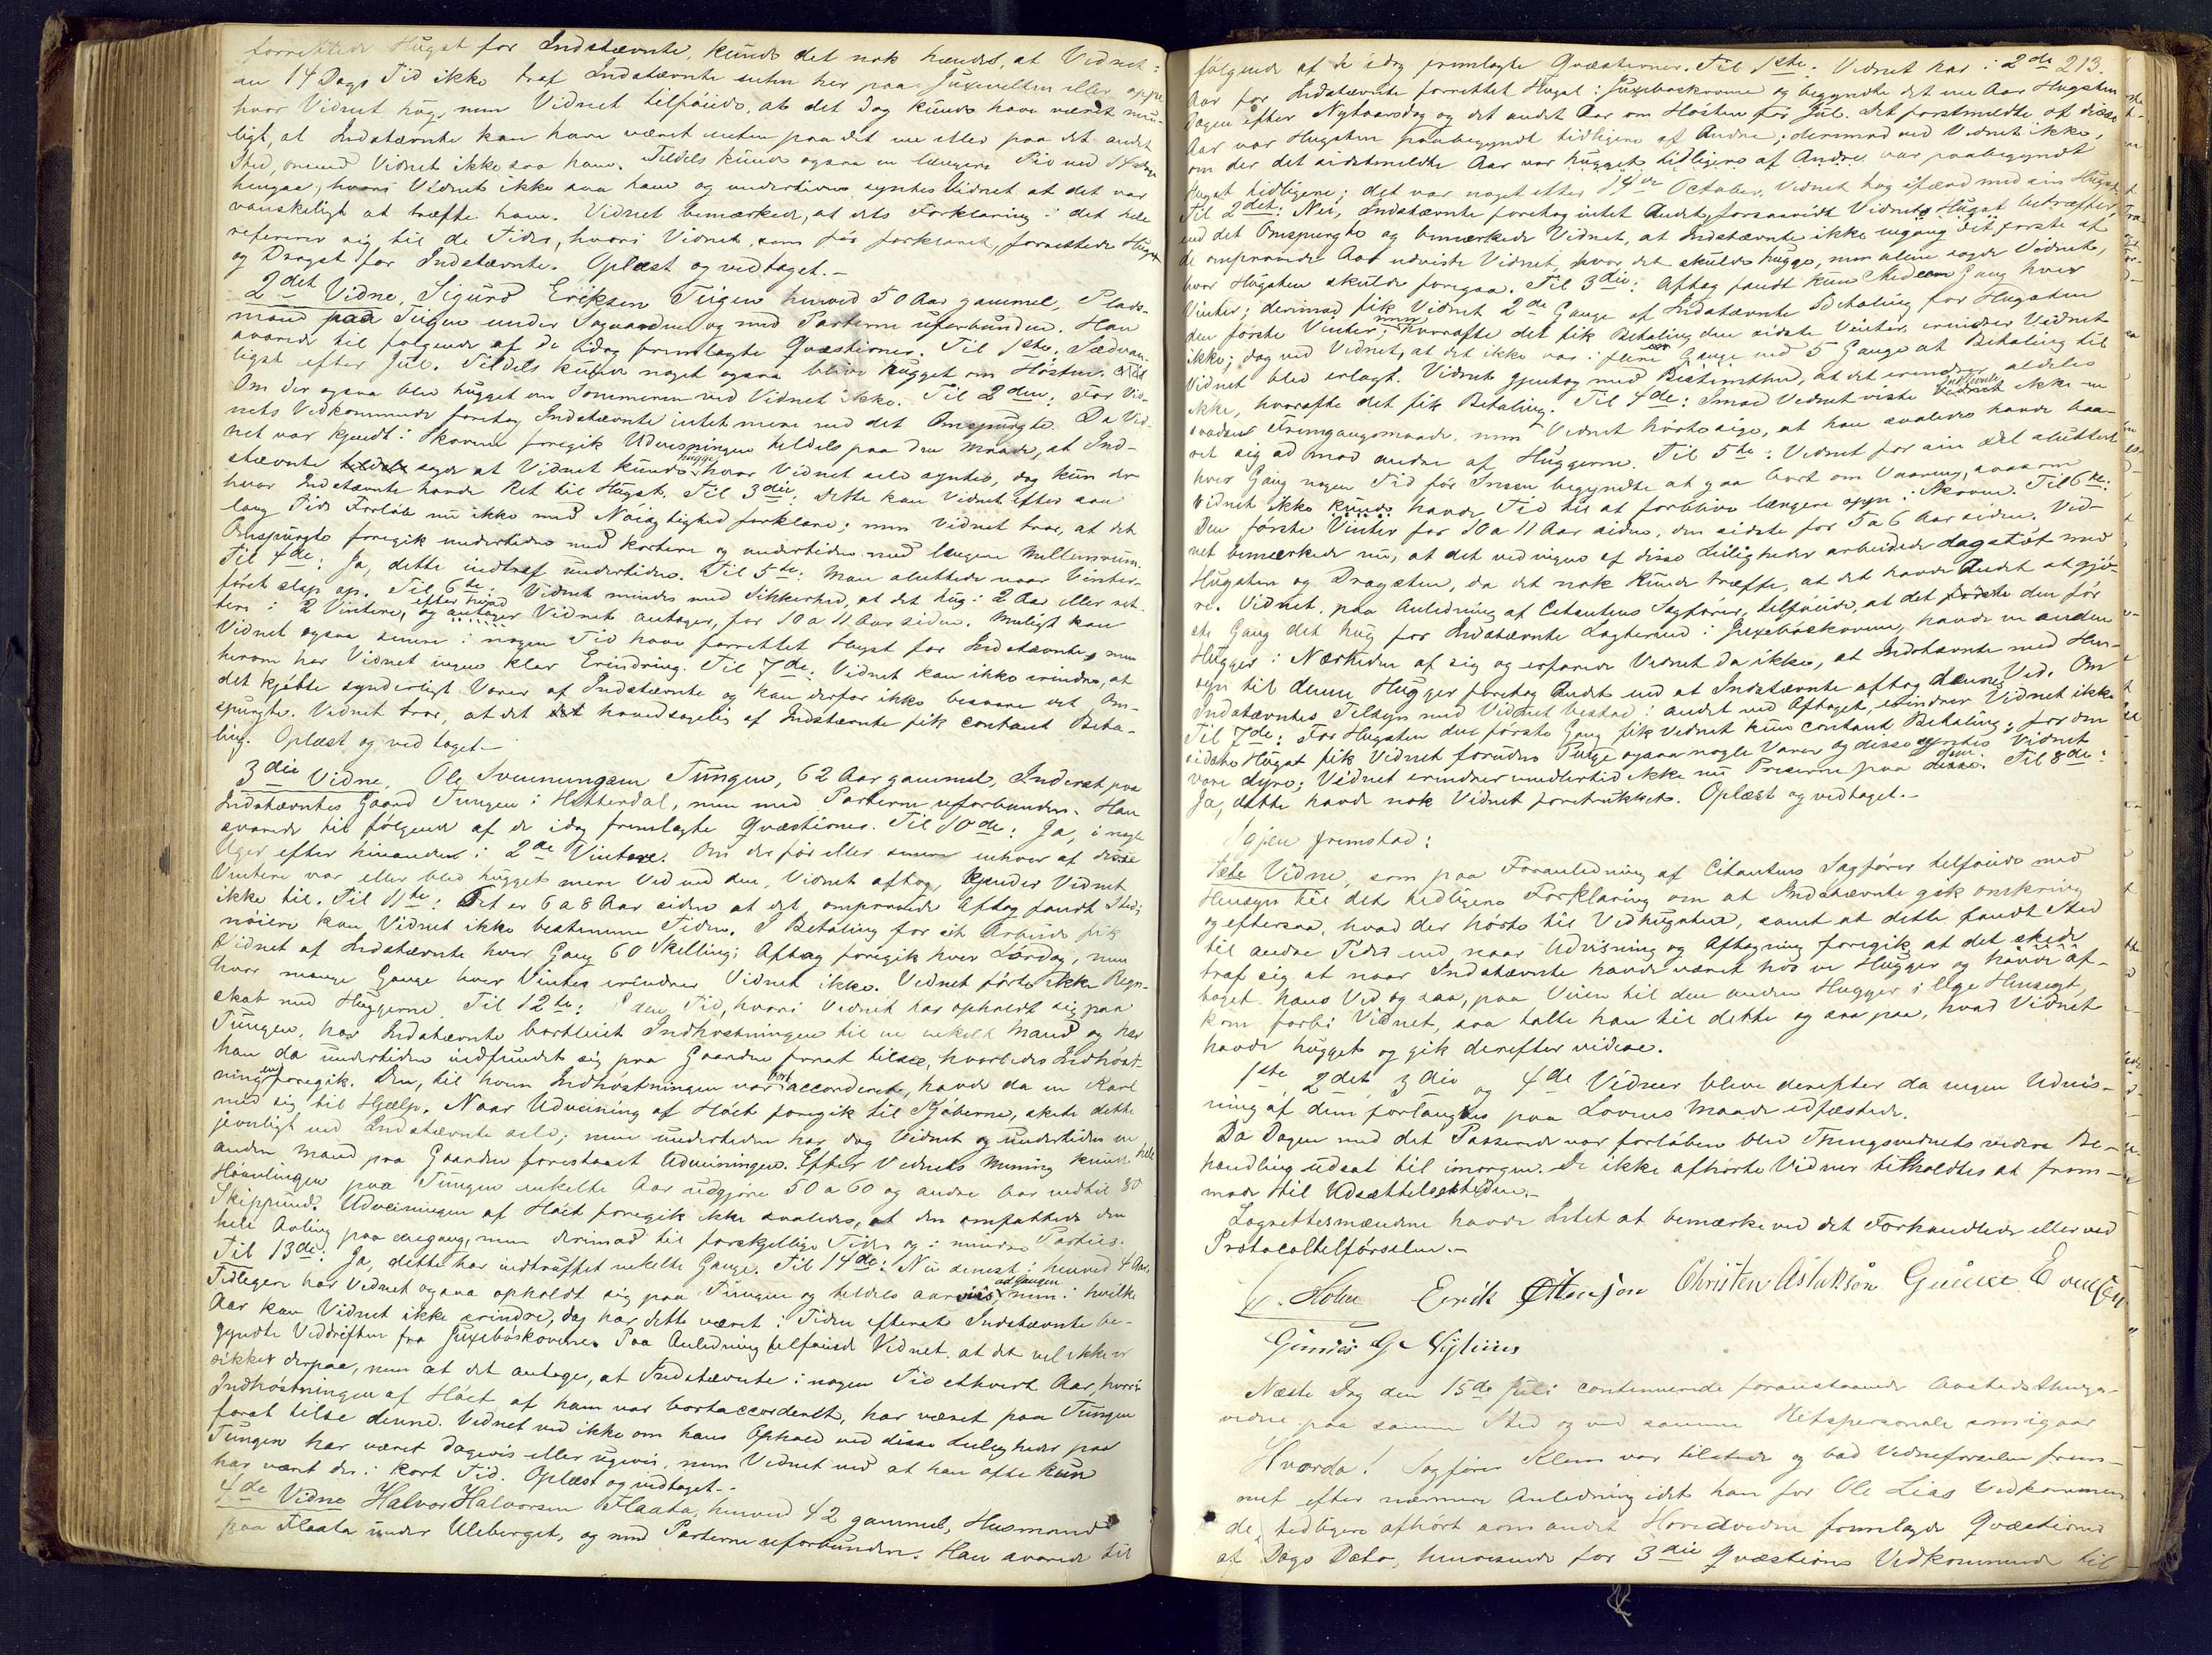 forrettede Hugst for Indstævnte, kunde det nok hændes, at Vidnet i
en 14 Dags Tid ikke traf Indstævnte enten her paa Juxevolten eller oppe
hvor Vidnet hug, men Vidnet tilføiede, at det dog kunde have været mu-
ligt, at Indstævnte kan have været enten paa det ene eller paa det andet
Sted, omend Vidnet ikke saa ham. Tildels kunde ogsaa en længere Tid end 14 Dage
hengaa, hvori Vidnet ikke saa ham og undertiden syntes Vidnet at det var
vanskeligt at træffe ham. Vidnet bemærkede, at dets Forklaring i det hele
refererer sig til de Tider, hvori Vidnet, som før forklaret, forrettede Hugst
og Dragst for Indstævnte. Oplæst og vedtaget.-
2det Vidne, Sigurd Eriksen Teigen henved 50 Aar gammel, Plads-
mand paa Teigen under Sagaarden og med Parterne uforbunden. Han
svarede til følgende af de idag fremlagte Qvæstioner. Til 1ste: Sædvan-
ligst efter Jul. Tildels kunde noget ogsaa blive hugget om Høsten.
Om der ogsaa blev hugget om Sommeren ved Vidnet ikke. Til 2den: For Vid-
nets Vedkommende foretog Indstævnte intet mere end det Omspurgte. Da Vid-
net var kjendt i Skovene foregik Udvisningen tildels paa den Maade, at Ind-
stævnte sagde at Vidnet kunde hugge hvor Vidnet selv syntes, dog kun der
hvor Indstævnte havde Ret til Hugst. Til 3die: Dette kan Vidnet efter saa
lang Tids Forløb nu ikke med Nøiagtighed forklare; men Vidnet tror, at det
Omspurgte foregik undertiden med kortere og undertiden med længere Mellemrum.
Til 4de: Ja, dette indtraf undertiden. Til 5te: Man sluttede naar Vinter-
føret slap op. Til 6te: Vidnet mindes med Sikkerhed, at det hug i 2 Aar eller ret-
tere i 2 Vintere, efter hvad Vidnet antager, for 10 a 11 Aar siden. Muligt kan
Vidnet ogsaa senere i nogen Tid have forrettet Hugst for Indstævnte, men
herom har Vidnet ingen klar Erindring. Til 7de: Vidnet kan ikke erindre, at
det kjøbte synderligt Varer af Indstævnte og kan derfor ikke besvare det Om-
spurgte. Vidnet tror, at det hovedsagelig af Indstævnte fik contant Beta-
ling. Oplæst og vedtaget.-
3die Vidne, Ole Svennungsen Tungen, 62 Aar gammel, Inderst paa
Indstævntes Gaard Tungen i Hitterdal, men med Parterne uforbunden. Han
svarede til følgende af de idag fremlagte Qvæstioner. Til 10de: Ja, i nogle
Uger efter hinanden i 2de Vintere. Om der før eller senere enhver af disse
Vintere var eller blev hugget mere Ved end den, Vidnet aftog, kjender Vidnet
ikke til. Til 11te: Det er 6 a 8 Aar siden at det omprøvede Aftag fandt Sted;
nøiere kan Vidnet ikke bestemme Tiden. I Betaling for sit Arbeide fik
Vidnet af Indstævnte hver Gang 60 Skilling; Aftag foregik hver Lørdag, men
hvor mange Gange hver Vinter erindrer Vidnet ikke. Vidnet førte ikke Regn-
skab med Huggerne. Til 12te: I den Tid, hvori Vidnet har opholdt sig paa
Tungen, har Indstævnte bortleiet Indhøstningen til en enkelt Mand og har
han da undertiden indfundet sig paa Gaarden forat tilsee, hvorledes Indhøst-
ningen foregik. Den, til hvem Indhøstningen var bortaccorderet, havde da en Karl
med sig til Hjælp. Naar Udveining af Høet foregik til Kjøberne, skete dette
jevnligt ved Indstævnte selv; men undertiden har dog Vidnet og undertiden en
anden Mand paa Gaarden forestaaet Udveiningen. Efter Vidnets Mening kunde hele
Høavlingen paa Tungen enkelte Aar udgjøre 50 a 60 og andre Aar indtil 80
Skippund. Udveiningen af Høet foregik ikke saaledes, at den omfattede den
hele Avling paa engang, men derimod til forskjellige Tider og i mindre Partier.
Til 13de: Ja, dette har indtruffet enkelte Gange. Til 14de: Nu senest i henved 4 Aar.
Tidligere har Vidnet ogsaa opholdt sig paa Tungen og tildels aarviis ad Gangen, men i hvilke
Aar kan Vidnet ikke erindre, dog har dette været i Tiden efterat Indstævnte be-
gyndte Veddriften fra Juxebøskovene. Paa Anledning tilføiede Vidnet, at det vel ikke er
sikker derpaa, men at det antager, at Indstævnte i nogen Tid ethvert Aar, hvori
Indhøstningen af Høet af ham var bortaccorderet, har været paa Tungen
forat tilse denne. Vidnet ved ikke om hans Ophold ved disse Leiligheder paa
Tungen har været dagevis eller ugevis, men Vidnet ved at han ofte kun
har været der i kort Tid. Oplæst og vedtaget.-
4de Vidne Halvor Halvorsen Flaata, henved 42 gammel, Husmand
paa Flaata under Uleberget, og med Parterne uforbunden. Han svarede til
213.
følgende af de idag fremlagte Qvæstioner. Til 1ste: Vidnet har i 2de
Aar for Indstævnte forrettet Hugst i Juxeboskovene og begyndte det ene Aar Hugsten
Dagen efter Nytaarsdag og det andet Aar om Høsten før Jul. Det førstmeldte af disse
Aar var Hugsten paabegyndt tidligere af Andre; derimod ved Vidnet ikke,
om der det sidstmeldte Aar var hugget tidligere af Andre var paabegyndt
Hugst tidligere; det var noget efter 14de October, Vidnet tog ifærd med sin Hugst.
Til 2det: Nei, Indstævnte foretog intet Andet, forsaavidt Vidnets Hugst betræffer,
end det Omspurgte og bemærkede Vidnet, at Indstævnte ikke engang det første af
de omprøvede Aar udviste Vidnet, hvor det skulde hugge, men alene sagde Vidnet,
hvor Hugsten skulde foregaa. Til 3die: Aftag fandt kun Sted een Gang hver
Vinter; derimod fik Vidnet 2de Gange af Indstævnte Betaling for Hugsten
den første Vinter; men hvorofte det fik Betaling den sidste Vinter, erindrer Vidnet
ikke; dog ved Vidnet, at det ikke var i flere Gange end 5 Gange at Betaling til
Vidnet blev erlagt. Vidnet gjentog med Bestemthed, at det erindrer aldeles
ikke, hvorofte det fik Betaling. Til 4de: Imod Vidnet viste Indstævnte ikke en
saadan Fremgangsmaade, men Vidnet hørte sige, at han saaledes havde baa-
ret sig ad mod andre af Huggerne. Til 5te: Vidnet for sin Del sluttede
hver Gang nogen Tid før Sneen begyndte at gaa bort om Vaaren, saasom
Vidnet ikke havde Tid til at forblive længere oppe i Skoven. Til 6te:
Den første Vinter for 10 a 11 Aar siden, den sidste for 5 a 6 Aar siden. Vid-
net bemærkede nu, at det ved ingen af disse Leiligheder arbeidede dagstøt med
Hugsten og Dragsten, da det nok kunde træffe, at det havde Andet at gjø-
re. Vidnet, paa Anledning af Citantens Sagfører, tilføiede, at det den før-
ste Gang det hug for Indstævnte Lagterved i Juxebøskovene, havde en anden
Hugger i Nærheden af sig og erfarede Vidnet da ikke, at Indstævnte med Hen-
syn til denne Hugger foretog Andet end at Indstævnte aftog dennes Ved. Om
Indstævntes Tilsyn med Vidnet bestod i andet end Aftaget, erindrer Vidnet ikke.
Til 7de: For Hugsten den første Gang fik Vidnet kun contant Betaling; for den
sidste Hugst fik Vidnet foruden Penge ogsaa nogle Varer og disse syntes Vidnet
vare dyre; Vidnet erindrer imidlertid ikke nu Priserne paa dem. Til 8de:
Ja, dette havde nok Vidnet foretrukket. Oplæst og vedtaget.-
Igjen fremstod:
1ste Vidne, som paa Foranledning af Citantens Sagfører tilføiede med
Hensyn til det tidligere Forklaring om at Indstævnte gik omkring
og eftersaa, hvad der hørte til Vedhugsten, samt at dette fandt Sted
til andre Tider end naar Udvisning og Aftagning foregik, at det
traf sig at naar Indstævnte havde været hos en Hugger og havde af-
taget hans Ved og saa, paa Veien til den anden Hugger i lige Hensigt,
kom forbi Vidnet, saa talte han til dette og saa paa, hvad Vidnet
havde hugget og gik derefter videre.
1ste 2det, 3die og 4de Vidner bleve derefter da ingen Udvis-
ning af dem forlangtes paa Lovens Maade edfæstede.
Da Dagen med det Passerede var forløben blev Thingsvidnets videre Be-
handling udsat til imorgen. De ikke afhørte Vidner tilholdtes at frem-
møde til Udsættelsestiden.-
Lagrettesmændene havde Intet at bemærke ved det Forhandlede eller ved
Protocoltilførselen.-
Holm Eerik Ottersson Christen Aslakson Gunder Evensen
Gunder G Nyhuus
Næste Dag den 15de Juli continuerede foranstaaende Aastedsthings-
vidne paa samme Sted og ved samme Retspersonale som igaar
Hvorda! Sagfører Klem var tilstede og bad Vidneførselen frem-
met efter nærmere Anledning idet han for Ole Lias Vedkommen-
de, tidligere afhørt som andet Hovedvidne fremlagde Qvæstioner
af Dags Dato, henvisende for 3die Qvæstions Vedkommende til